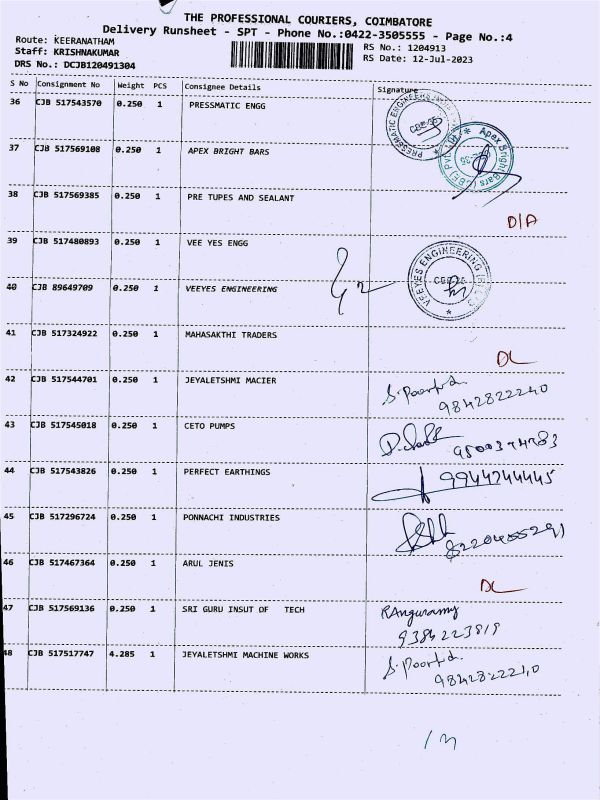 THE PROFESSIONAL COURIERS, COIMBATORE
Delivery Runsheet - SPT - Phone No.:0422-3505555 - Page No.:4
Route: KEERANATHAM
RS No.: 1204913
Staff: KRISHNAKUMAR
RS Date: 12-Jul-2023
DRS No.: DCJB120491304
S No Consignment No Weight PCS Consignee Details Signature
36 CJB 517543570 0.250 1 PRESSMATIC ENGG
37 CJB 517569108 0.250 1 APEX BRIGHT BARS
38 CJB 517569385 0.250 1 PRE TUPES AND SEALANT
D/A
39 CJB 517480893 0.250 1 VEE YES ENGG
40 CJB 89649709 0.250 1 VEEYES ENGINEERING
41 CJB 517324922 0.250 1 MAHASAKTHI TRADERS
DL
42 CJB 517544701 0.250 1 JEYALETSHMI MACIER
9842822240
43 CJB 517545018 0.250 1 CETO PUMPS
44 CJB 517543826 0.250 1 PERFECT EARTHINGS 9944744445
45 CJB 517296724 0.250 1 PONNACHI INDUSTRIES
46 CJB 517467364 0.250 1 ARUL JENIS
DL
47 CJB 517569136 0.250 1 SRI GURU INSUT OF TECH
9384223819
48 CJB 517517747 4.285 1 JEYALETSHMI MACHINE WORKS